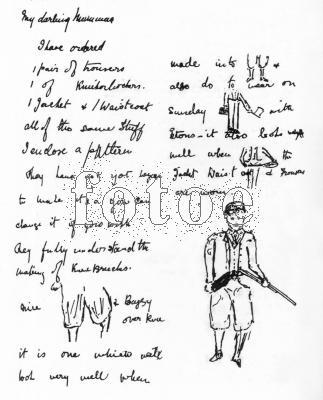 My darling Mummum
I have ordered
1 pair of trousers
1 of Knickerbockers.
1 Jacket & 1 Waistcoat
all of the same stuff
I enclose a pattern
They have got
to make it & you can
change it if you wish
They fully understand the
making of Knee Breeches.
nice
& Baggy
over knee
it is one which will
look very well when
made into &
also do to wear on
Sunday with
Etons - it also looks
well when the
Jacket Waist & Trousers
are
fotoe